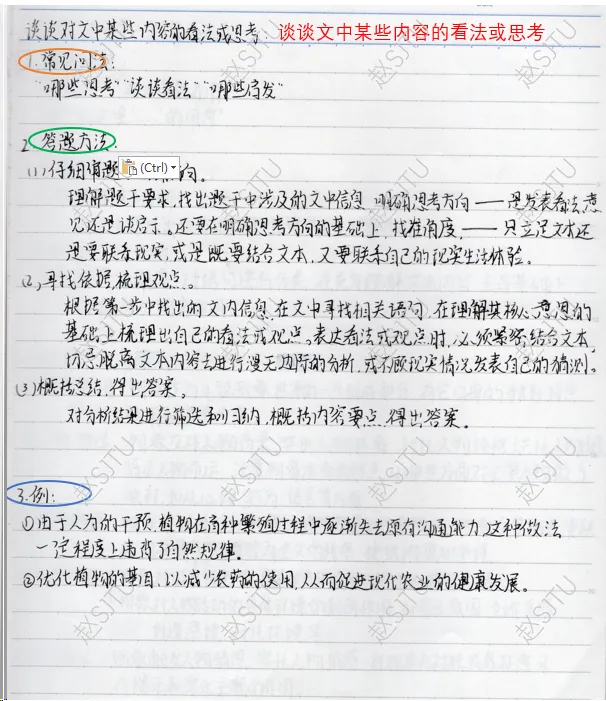 谈谈对文中某些内容的看法或思考: 谈谈文中某些内容的看法或思考
1.常见问法:
"哪些思考" "谈谈看法" "哪些启发"
2.答题方法:
(1)仔细 题 (Ctrl) 向。
理解题干要求,找出题干中涉及的文中信息,明确思考方向——是发表看法、意
见还是谈启示。还要在明确思考方向的基础上,找准角度,——只立足文本还
是要联系现实,或是既要结合文本,又要联系自己的现实生活体验。
(2)寻找依据,梳理观点。
根据第一步中找出的文内信息,在文中寻找相关语句,在理解其核心意思的
基础上梳理出自己的看法或观点。表达看法或观点时,必须紧密结合文本,
切忌脱离文本内容去进行漫无边际的分析,或不顾现实情况发表自己的猜测。
(3)概括总结,得出答案。
对分析结果进行筛选和归纳,概括内容要点,得出答案。
3.例:
①由于人为的干预,植物在育种繁殖过程中逐渐失去原有沟通能力,这种做法
一定程度上违背了自然规律。
②优化植物的基因,以减少农药的使用,从而促进现代农业的健康发展。
赵SJTU